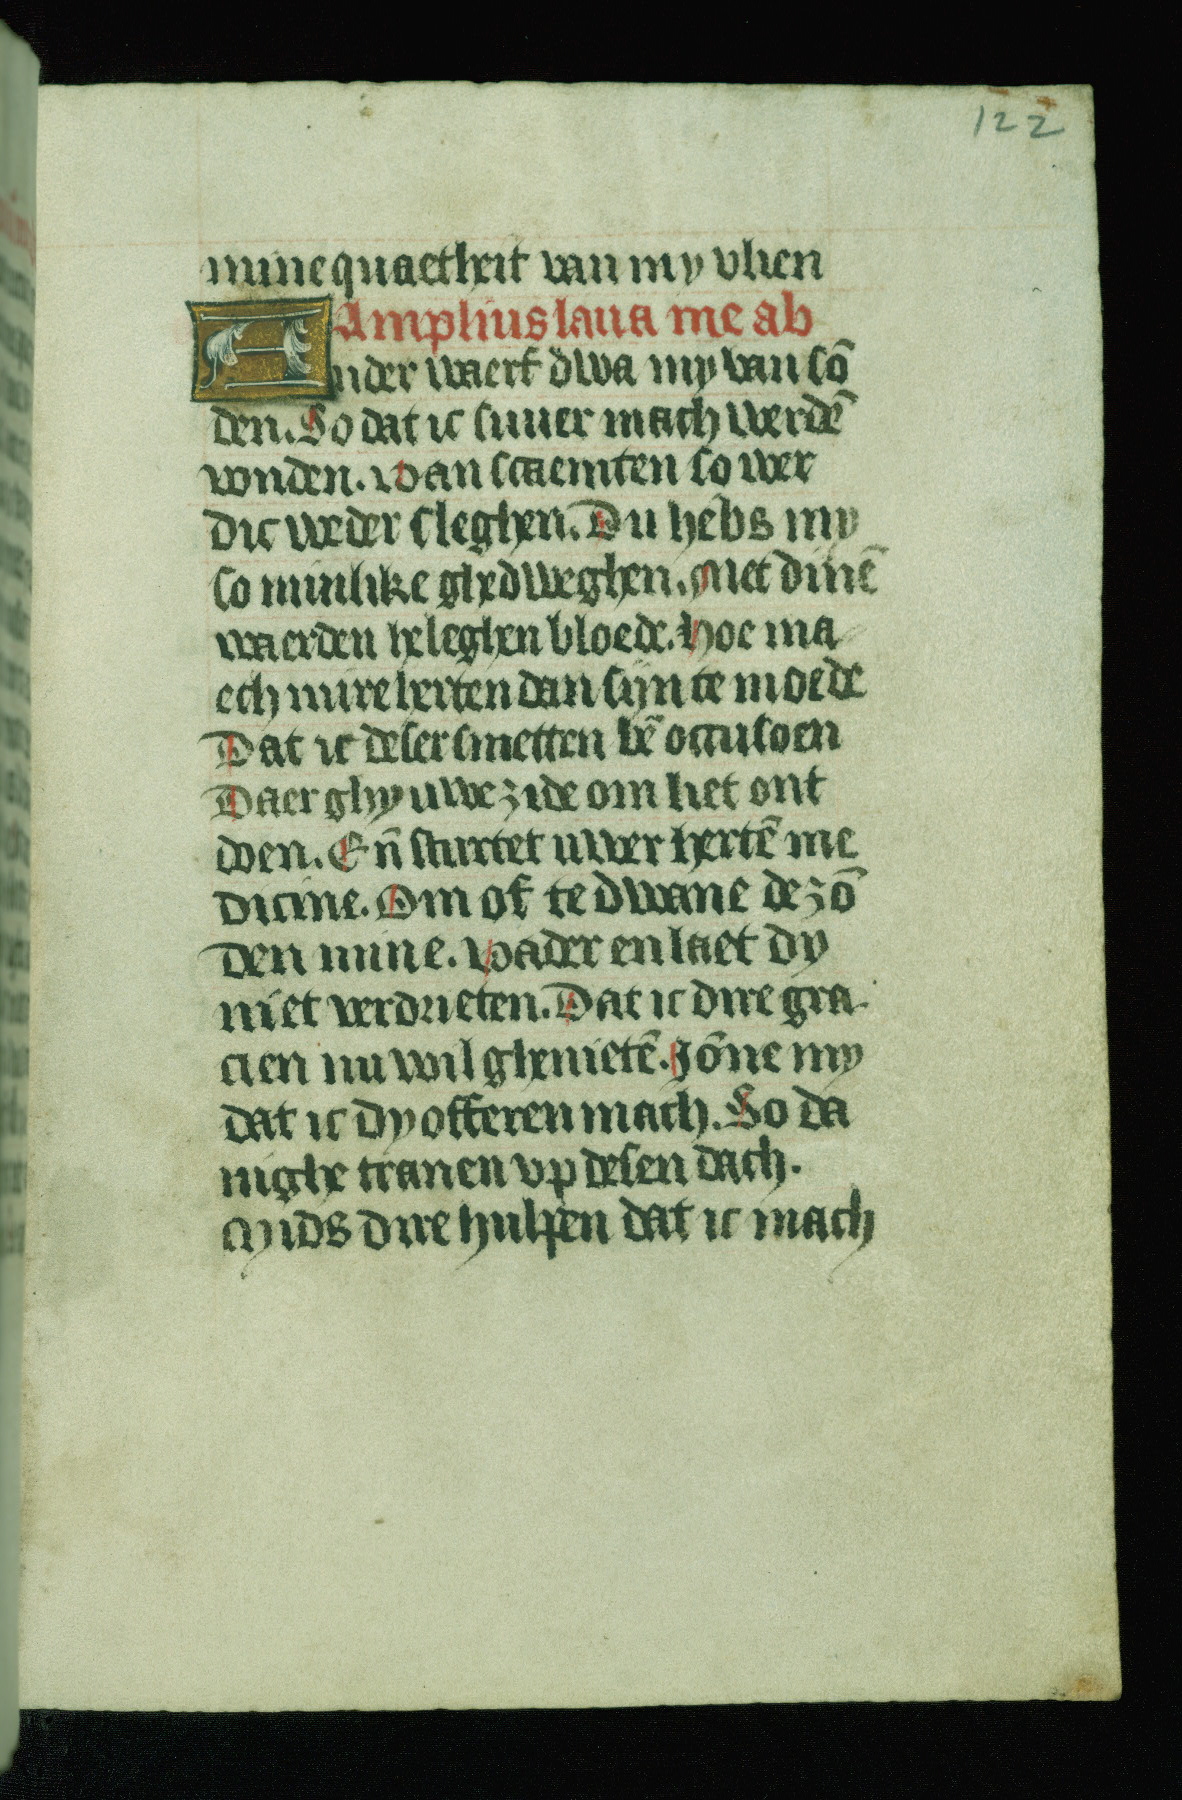 122
mine quaetheit van my vlien
Amplius laua me ab
Ander waerf dwa my van sō
den. So dat ic suuer mach werdē
vonden. Van scaemten so wer
dic weder sleghen. Du hebs my
so minlike ghedweghen. Met dinē
waerden heleghen bloede. Hoe ma
ech mire herten dan sijn te moede
Dat ic deser smetten bē occusoen
Daer ghy uwe zide om liet ont
doen. En̄ sturtet uwer hertē me
dicine. Om of te dwane de zō
den mine. Vader en laet dy
niet verdrieten. Dat ic dire gra
cien nu wil ghenietē. Jōne my
dat ic dy offeren mach. So da
nighe tranen vp desen dach.
Mids dire hulpen dat ic mach